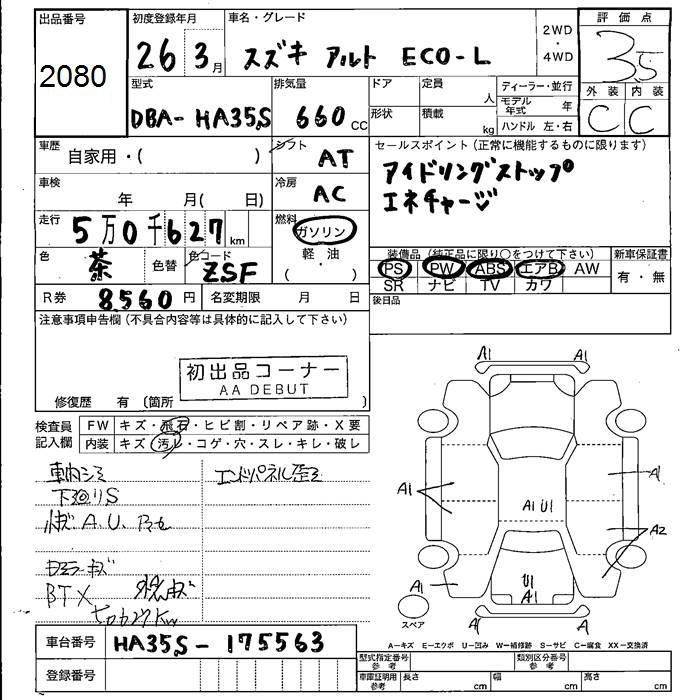 出品番号
2080
初度登録年月
26 3月
車名・グレード
スズキ アルト ECO-L
2WD
・
4WD
評価点
3.5
型式
DBA-HA35S
排気量
660 CC
ドア
形状
定員
人
積載
kg
ディーラー・並行
モデル年式 年
ハンドル 左・右
外装 内装
C C
車歴
自家用・( )
シフト
AT
セールスポイント (正常に機能するものに限ります)
アイドリングストップ
エネチャージ
車検
年 月( 日)
冷房
AC
走行
5万0千627km
燃料
ガソリン
軽・油
( ・ )
色
茶
色替
色コード
ZSF
装備品 (純正品に限り○をつけて下さい)
PS PW ABS エアB AW
SR ナビ TV カワ
新車保証書
有・無
R券 8560円
名変期限 月 日
後日品
注意事項申告欄 (不具合内容等は具体的に記入して下さい)
初出品コーナー
AA DEBUT
修復歴 有 (箇所 )
検査員記入欄
FW キズ・飛石・ヒビ割・リペア跡・X要
内装 キズ・汚レ・コゲ・穴・スレ・キレ・破レ
車内シミ
エンドパネル歪ミ
下廻りS
A.U.
BTX
A1 A1
A1 A1
A1 U1
A2
U1
A1
A1
A A
スペア
A-キズ E-エクボ U-凹み W-補修跡 S-サビ C-腐食 XX-交換済
車台番号 HA35S-175563
登録番号
型式指定番号 参考
類別区分番号 参考
車庫証明用 参考
長さ cm
幅 cm
高さ cm